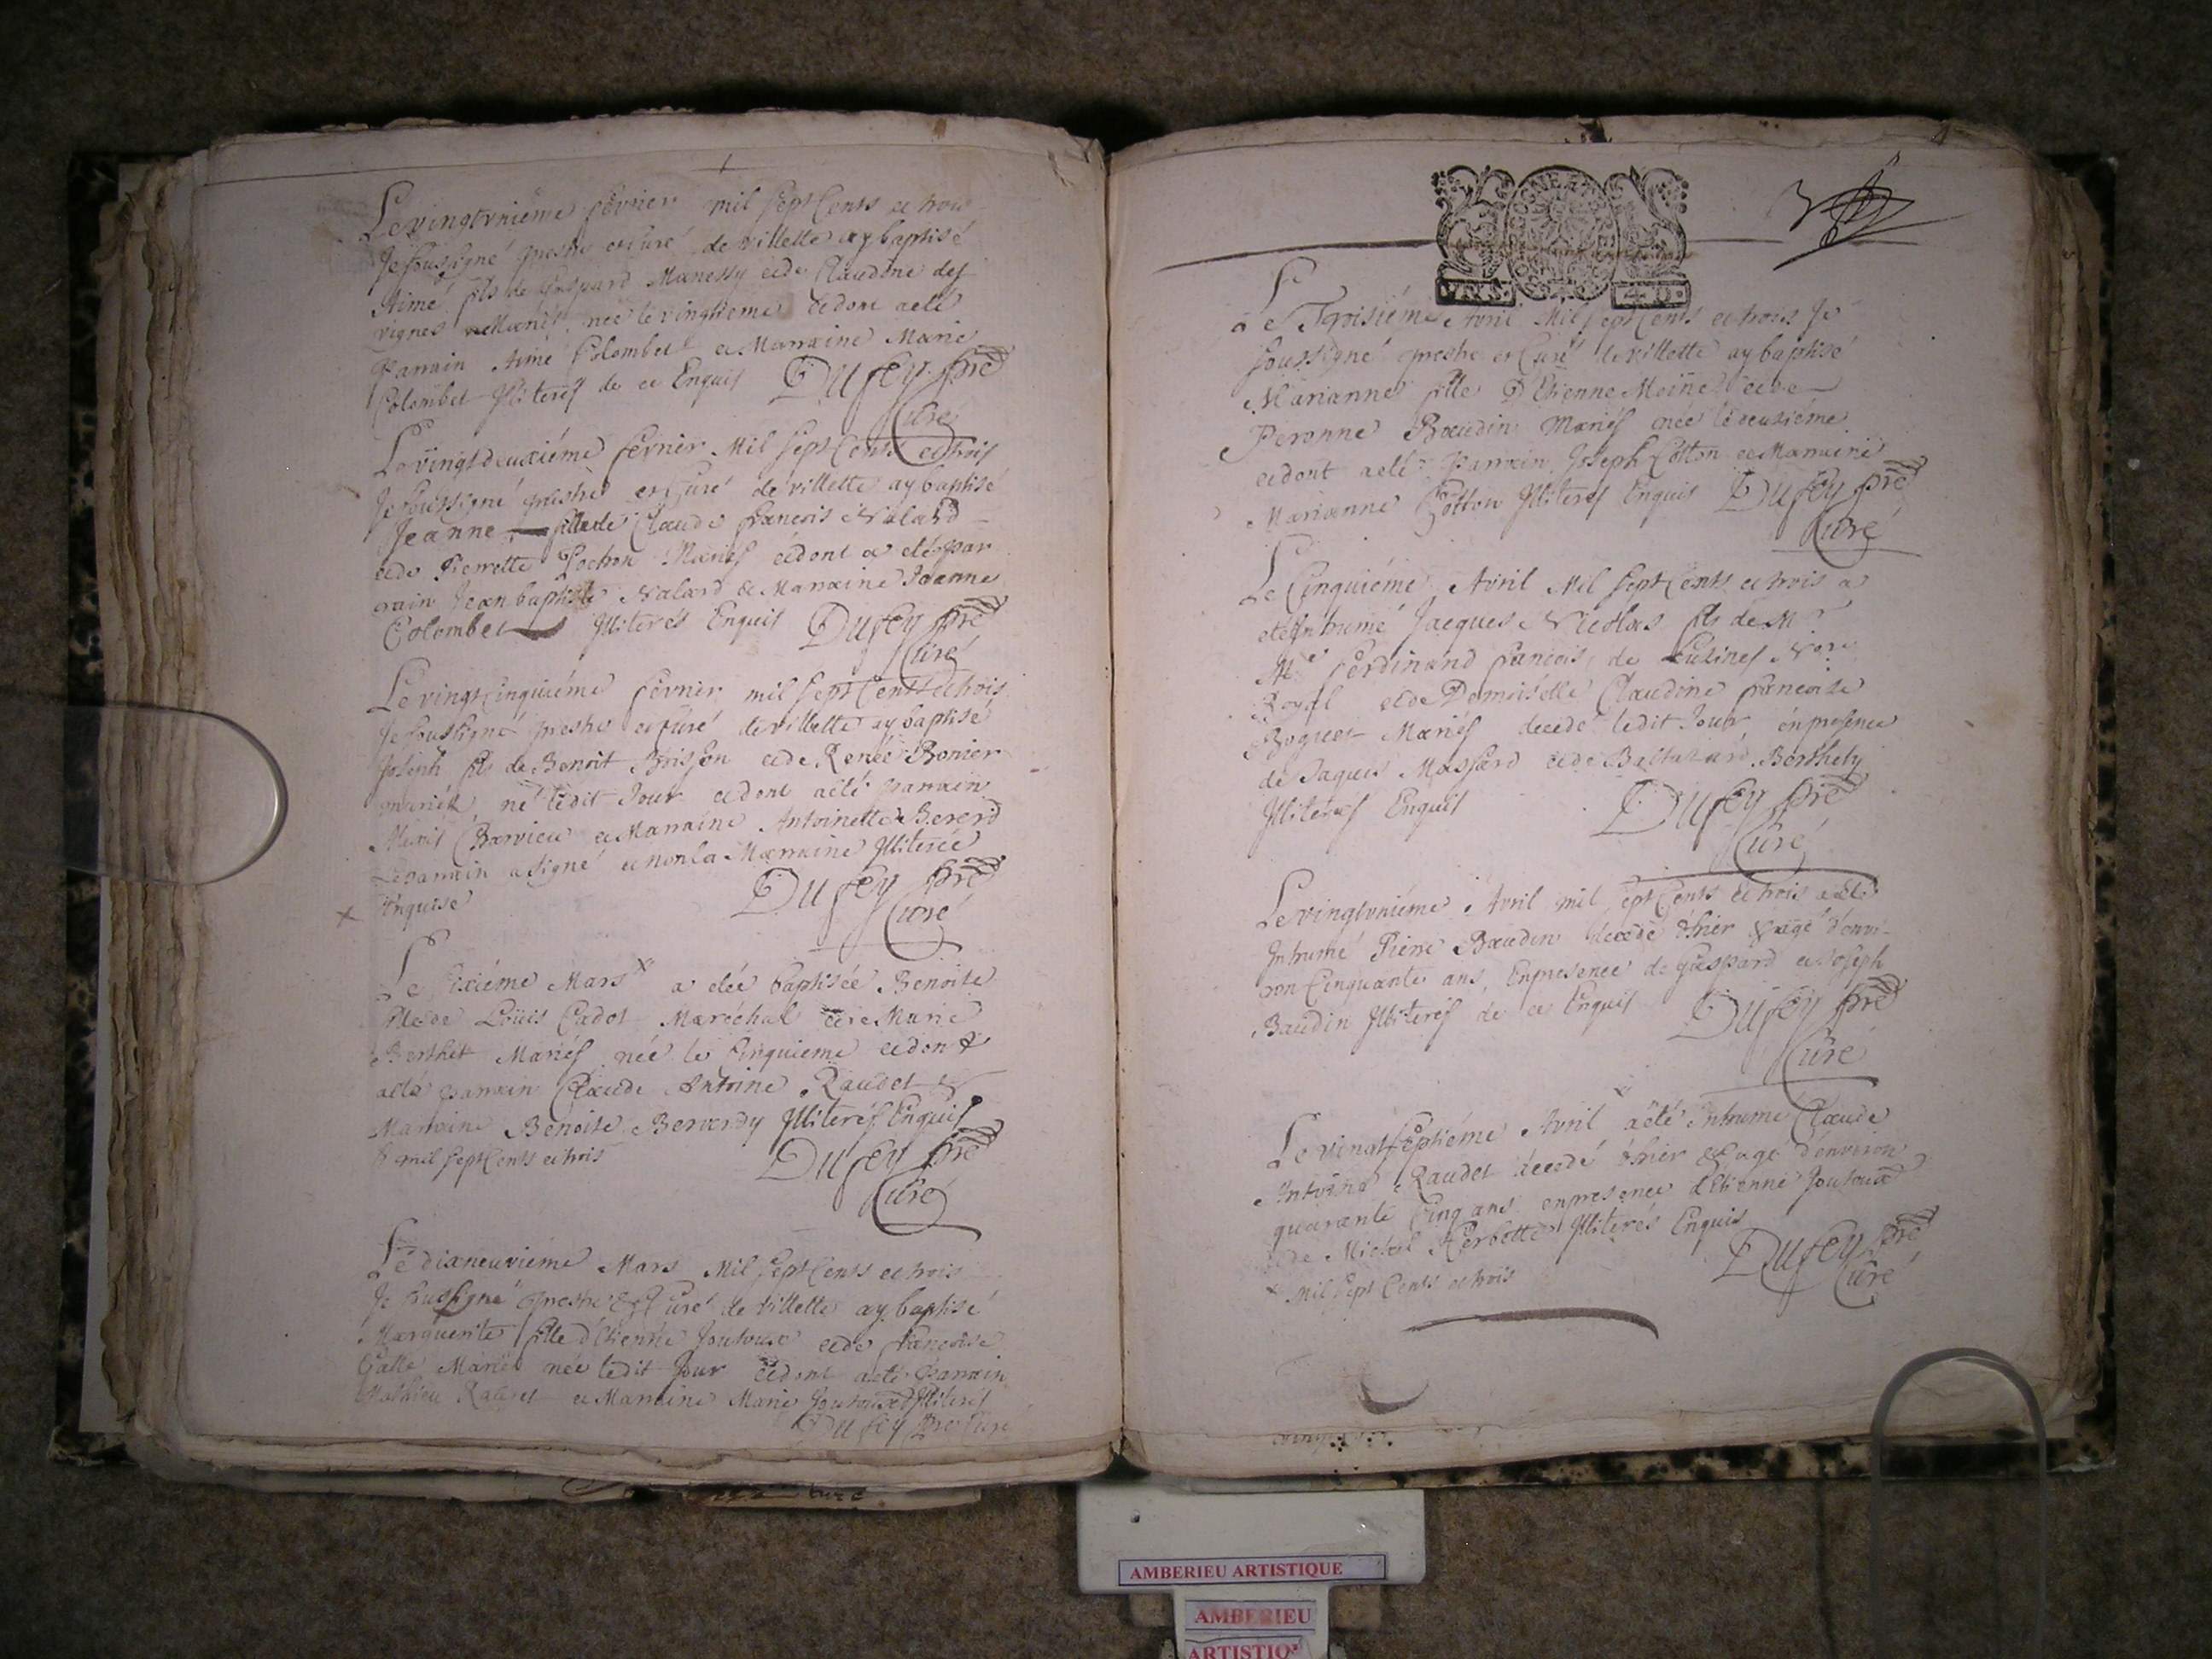 Le vingtuniéme fevrier mil sept Cents et trois
Je soussigné prestre et Curé de villette ay baptisé
Aimé fils de Gaspard Manessy et de Claudine des
vignes Mariés, née le vingtieme et dont a eté
Parrain Aimé Colombet et Marraine Marie
Colombet Illiterés de ce Enquis Dufey pre
Curé
Le vingtdeuxiéme fevrier Mil sept Cents et trois
Je soussigné prestre et Curé de villette ay baptisé
Jeanne fille de Claude francois Nalard
et de Pierrette Pochon Mariés et dont a eté par
rain Jean baptiste Nalard & Marraine Jeanne
Colombet Illiterés Enquis Dufey pre
Curé
Le vingtcinquiéme fevrier mil sept Cents et trois
Je soussigné prestre et Curé de villette ay baptisé
Joseph fils de Benoit Brisson et de Renée Bonier
mariés né ledit Jour et dont a eté parrain
Barvieu et Marraine Antoinette Bererd
Le parrain a signé et non la Marraine Illiterée
Enquise Dufey pre
Curé
Le sixiéme Mars x a eté baptisée Benoite
fille de Loüis Cadot Maréchal et de Marie
Berthet Mariés née le Cinquieme et dont
a eté parrain Claude Antoine Raudet &
Marraine Benoite Berverdy Illiterés Enquis
x mil sept Cents et trois Dufey pre
Curé
Le dixneuviéme Mars Mil sept Cents et trois
Je soussigné prestre & Curé de Villette ay baptisé
Marguerite fille d'Etienne Joutoux et de francoise
Galle Mariés née ledit Jour et dont a eté Parrain
Mathieu et Marraine Marie Joutoux Illiterés
Dufey pre Curé
Le Troisiéme Avril Mil sept Cents et trois Je
soussigné prestre et Curé de villette ay baptisé
Marianne fille D'Etienne Moine et de
Peronne Baudin Mariés née le deusiéme
et dont a eté Parrain Joseph Cotton et Marraine
Marianne Cotton Illiterés Enquis Dufey pre
Curé
Le Cinquiéme Avril Mil sept Cents et trois a
eté Inhumé Jacques Nicolas fils de Mr
Me Ferdinand francois de Lusines
Royal et de Demoiselle Claudine francoise
Boguet Mariés decedé ledit Jour en presence
de Jaques Massard et de Baltazard Berthety
Illiterés Enquis Dufey pre
Curé
Le vingtuniéme Avril mil sept Cents et trois a eté
Inhumé Pierre Baudin decedé d'hier & agé d'envi-
ron Cinquante ans, En presence de Gaspard et Joseph
Baudin Illiterés de ce Enquis Dufey pre
Curé
Le vingtseptiéme Avril x a eté Inhumé Claude
Antoine Raudet decedé d'hier & age d'environ
quarante Cinq ans en presence d'Etienne Joutoux
et de Michel Herbette Illiterés Enquis
x Mil sept Cents et trois Dufey pre
Curé
AMBERIEU ARTISTIQUE
AMBERIEU
ARTISTIQ